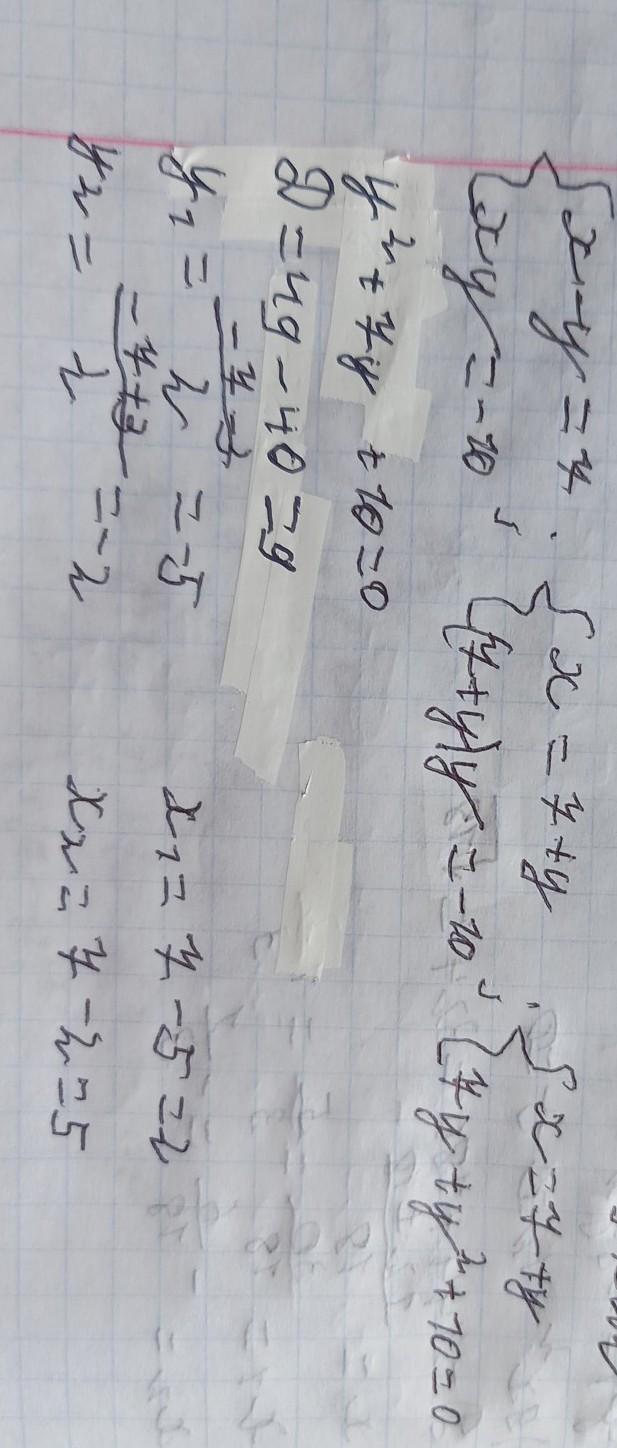 { x - y = 7 ; { x = 7 + y ; { x = 7 + y
{ xy = -10 { (7 + y)y = -10 { 7y + y² + 10 = 0
y² + 7y + 10 = 0
D = 49 - 40 = 9
y₁ = (-7 - 3)/2 = -5 x₁ = 7 - 5 = 2
y₂ = (-7 + 3)/2 = -2 x₂ = 7 - 2 = 5